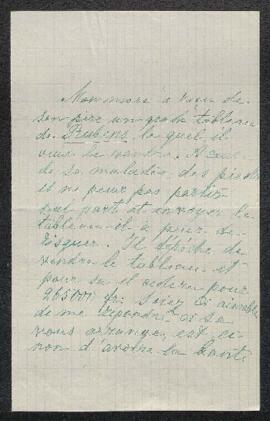 Mon mari a reçu de
son père un grand tableau
de Rubens le quel il
veut le vendre. A cause
de sa maladie des pieds
il ne peut pas partir
qué part et envoyer le
tableau il a peur de
risquer. Il dépêche de
vendre le tableau et
pour sa il cedera pour
265000 fr. Soiez si aimable
de me repondre si sa
vous arrange, est ci
non d'avoire la bonté